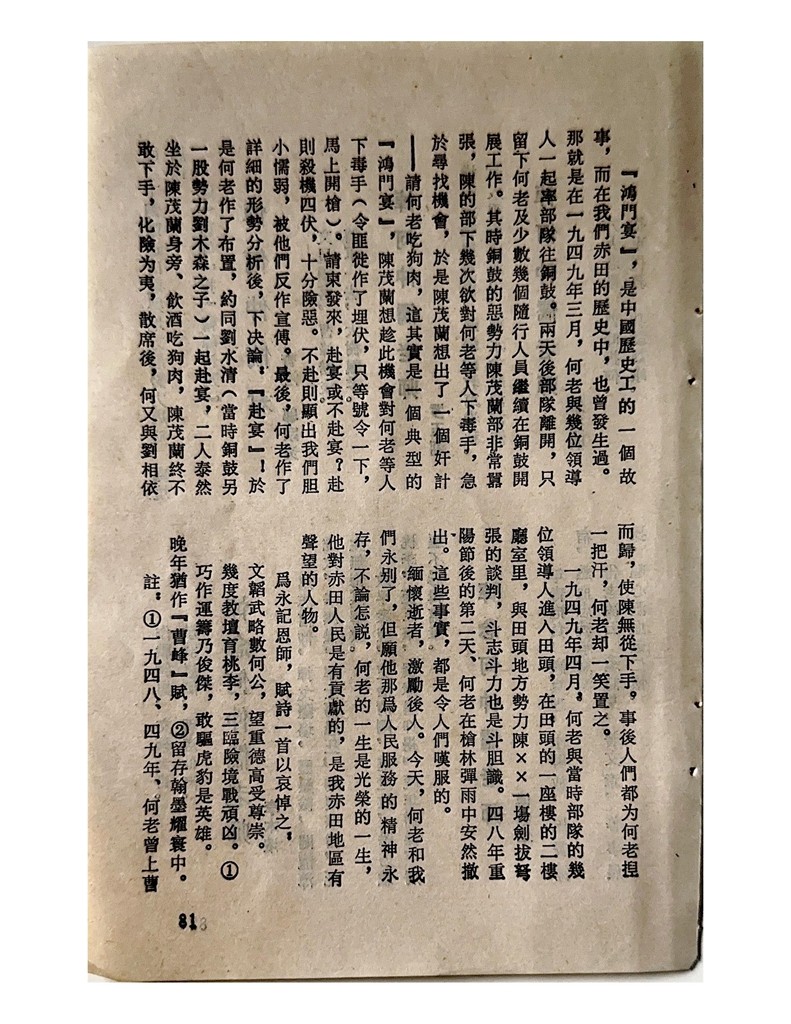 『鴻門宴』，是中國歷史工的一個故
事，而在我們赤田的歷史中，也曾發生過。
那就是在一九四九年三月，何老與幾位領導
人一起率部隊往銅鼓。兩天後部隊離開，只
留下何老及少數幾個隨行人員繼續在銅鼓開
展工作。其時銅鼓的惡勢力陳茂蘭部非常囂
張，陳的部下幾次欲對何老等人下毒手，急
於尋找機會，於是陳茂蘭想出了一個奸計
——請何老吃狗肉，這其實是一個典型的
『鴻門宴』，陳茂蘭想趁此機會對何老等人
下毒手（令匪徙作了埋伏，只等號令一下，
馬上開槍）。請柬發來，赴宴或不赴宴？赴
則殺機四伏，十分險惡。不赴則顯出我們胆
小懦弱，被他們反作宣傳。最後，何老作了
詳細的形勢分析後，下决論：『赴宴』！於
是何老作了布置，約同劉水清（當時銅鼓另
一股勢力劉木森之子）一起赴宴，二人泰然
坐於陳茂蘭身旁、飲酒吃狗肉，陳茂蘭終不
敢下手，化險为夷，散席後，何又與劉相依
而歸，使陳無從下手。事後人們都为何老揑
一把汗，何老却一笑置之。
一九四九年四月，何老與當時部隊的幾
位領導人進入田頭，在田頭的一座樓的二樓
廳室里，與田頭地方勢力陳××一塲劍拔弩
張的談判，斗志斗力也是斗胆識。四八年重
陽節後的第二天、何老在槍林彈雨中安然撤
出。這些事實，都是令人們嘆服的。
緬懷逝者，激勵後人。今天，何老和我
們永别了，但願他那爲人民服務的精神永
存，不論怎説，何老的一生是光榮的一生，
他對赤田人民是有貢獻的，是我赤田地區有
聲望的人物。
爲永記恩師，賦詩一首以哀悼之：
文韜武略數何公，望重德高受尊崇。
幾度教壇育桃李，三臨險境戰頑凶。①
巧作運籌乃俊傑，敢驅虎豹是英雄。
晚年猶作『曹峰』賦，②留存翰墨耀寰中。
註：①一九四八、四九年、何老曾上曹
81